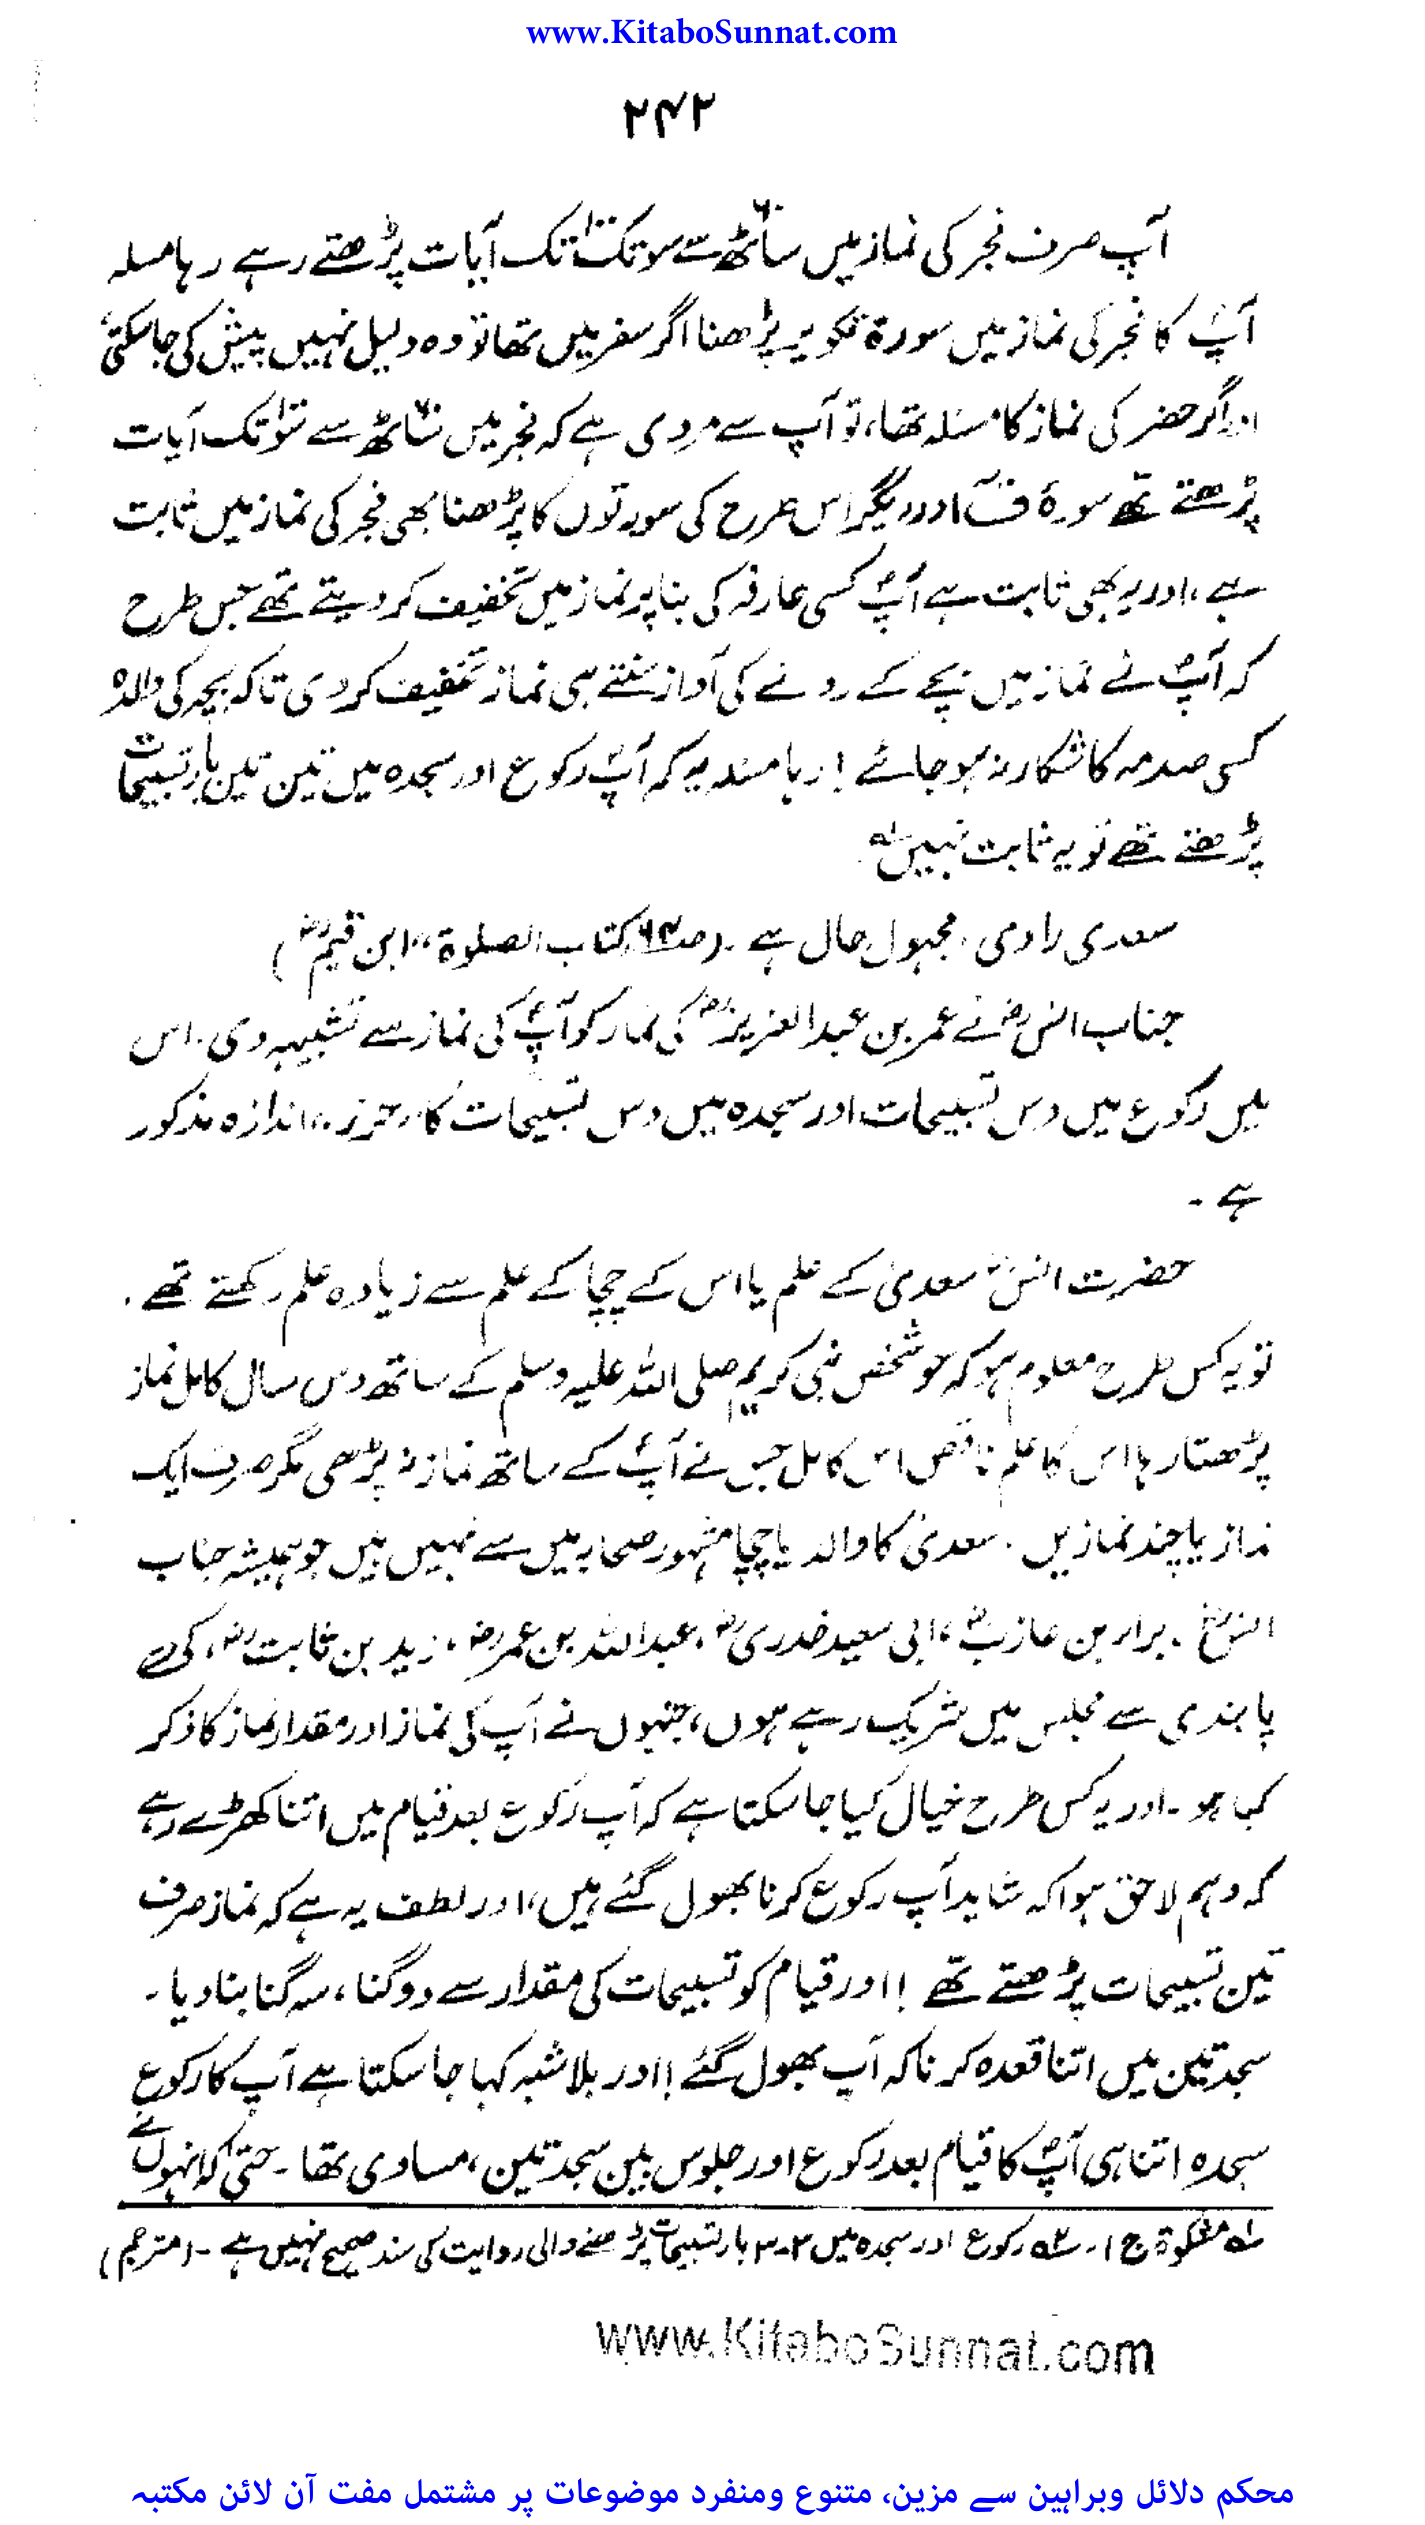 www.KitaboSunnat.com
۲۴۲
آپ صرف فجر کی نماز میں ساٹھ سے سو تک آیات پڑھتے رہے رہا مسلہ
آپؐ کا فجر کی نماز میں سورۃ تکویر پڑھنا اگر سفر میں تھا تو وہ دلیل نہیں پیش کی جا سکتی
اگر حضر کی نماز کا مسئلہ تھا، تو آپ سے مروی ہے کہ فجر میں ساٹھ سے سو تک آیات
پڑھتے تھے سورۂ قٓ اور دیگر اس طرح کی سورتوں کا پڑھنا بھی فجر کی نماز میں ثابت
ہے، اور یہ بھی ثابت ہے آپؐ کسی عارفہ کی بنا پر نماز میں تخفیف کر دیتے تھے جس طرح
کہ آپؐ نے نماز میں بچے کے رونے کی آواز سنتے ہی نماز تخفیف کر دی تاکہ بچہ کی والدہ
کسی صدمہ کا شکار نہ ہو جائے! رہا مسئلہ یہ کہ آپؐ رکوع اور سجدہ میں تین تین بار تسبیحات
پڑھتے تھے تو یہ ثابت نہیں
سعدی راوی، مجہول حال ہے ۔ (صـ۶۴ کتاب الصلوۃ "ابن قیمؒ)
جناب انسؓ نے عمر بن عبدالعزیزؒ کی نماز کو آپؐ کی نماز سے تشبیہہ دی۔ اس
میں رکوع میں دس تسبیحات اور سجدہ میں دس تسبیحات کا "حزر" اندازہ مذکور
ہے ۔
حضرت انسؓ سعدی کے علم یا اس کے چچا کے علم سے زیادہ علم رکھتے تھے ۔
تو یہ کس طرح معلوم ہو کہ جو شخص نبی کریم صلی اللہ علیہ وسلم کے ساتھ دس سال کامل نماز
پڑھتا رہا اس کا علم ناقص اس کامل جس نے آپؐ کے ساتھ نماز نہ پڑھی مگر صرف ایک
نماز یا چند نمازیں ۔ سعدی کا والد یا چچا مشہور صحابہ میں سے نہیں ہیں جو ہمیشہ جناب
انسؓ ، براء بن عازبؓ، ابی سعید خدریؓ، عبداللہ بن عمرؓ، زید بن ثابتؓ، کی سے
پابندی سے مجلس میں شریک رہے ہوں، جنہوں نے آپ کی نماز اور مقدار نماز کا ذکر
کیا ہو ۔ اور یہ کس طرح خیال کیا جا سکتا ہے کہ آپ رکوع بعد قیام میں اتنا کھڑے رہے
کہ وہم لاحق ہوا کہ شاید آپ رکوع کرنا بھول گئے ہیں، اور لطف یہ ہے کہ نماز صرف
تین تسبیحات پڑھتے تھے !! اور قیام کو تسبیحات کی مقدار سے دو گنا، سہ گنا بنا دیا ۔
سجدتین میں اتنا قعدہ کرنا کہ آپ بھول گئے !! اور بلا شبہ کہا جا سکتا ہے آپ کا رکوع
سجدہ اتنا ہی آپؐ کا قیام بعد رکوع اور جلوس بین سجدتین، مساوی تھا ۔ حتیٰ کہ انہوں نے
لہ مشکوٰۃ ج ۱۔ ۲ہ رکوع اور سجدہ میں ۳-۳ بار تسبیحات پڑھنے والی روایت کی سند صحیح نہیں ہے ۔ (مترجم)
www.KitaboSunnat.com
محکم دلائل وبراہین سے مزین، متنوع ومنفرد موضوعات پر مشتمل مفت آن لائن مکتبہ